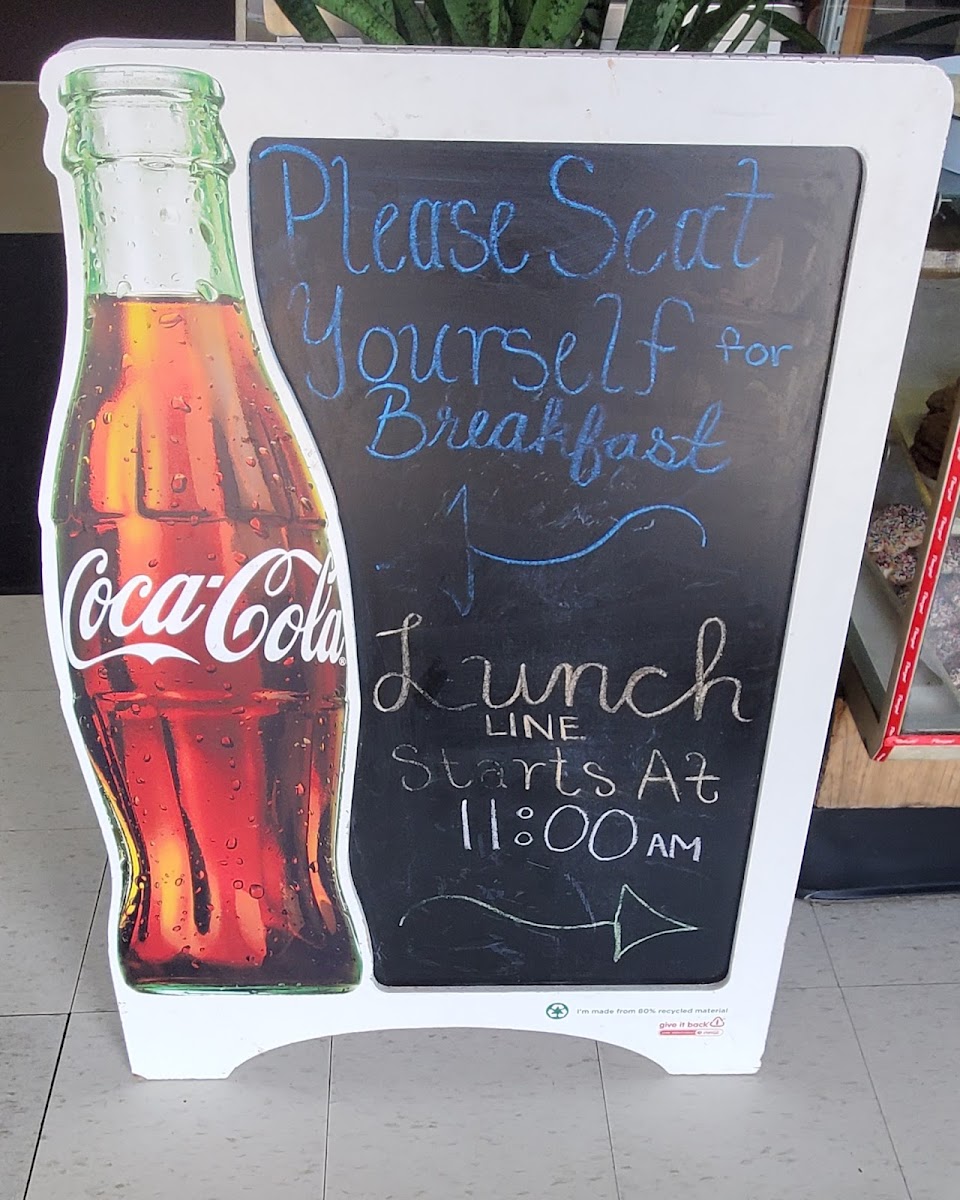 Please Seat
Yourself for
Breakfast
Coca-Cola
Lunch
LINE
Starts At
11:00 AM
I'm made from 80% recycled material
give it back